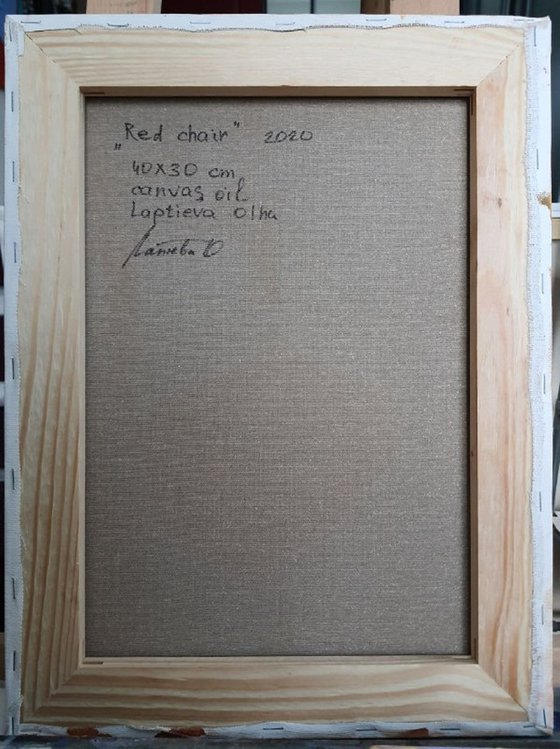 „Red chair" 2020
40x30 cm
canvas oil
Laptieva Olha
Лаптєва О